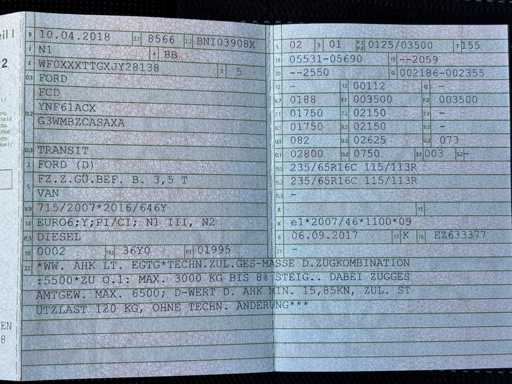 10.04.2018 8566 BNI03908X
N1 BB
WF0XXXTTGXJY28138 5
FORD
FCD
YNF61ACX
G3WMBZCASAXA
TRANSIT
FORD (D)
FZ.Z.GÜ.BEF. B. 3,5 T
VAN
715/2007*2016/646Y
EURO6;Y;PI/CI; N1 III, N2
DIESEL
0002 36Y0 01995
02 01 0125/03500 155
05531-05690 --2059
--2550 002186-002355
- 00112 -
0188 003500 003500
01750 02150 -
01750 02150 -
082 02625 073
02800 0750 003 -
235/65R16C 115/113R
235/65R16C 115/113R
-
e1*2007/46*1100*09
06.09.2017 K EZ633377
-
*WW. AHK LT. EGTG*TECHN.ZUL.GES-MASSE D.ZUGKOMBINATION
:5500*ZU O.1: MAX. 3000 KG BIS 8% STEIG.. DABEI ZUGGES
AMTGEW. MAX. 6500; D-WERT D. AHK MIN. 15,85KN, ZUL. ST
ÜTZLAST 120 KG, OHNE TECHN. ÄNDERUNG***